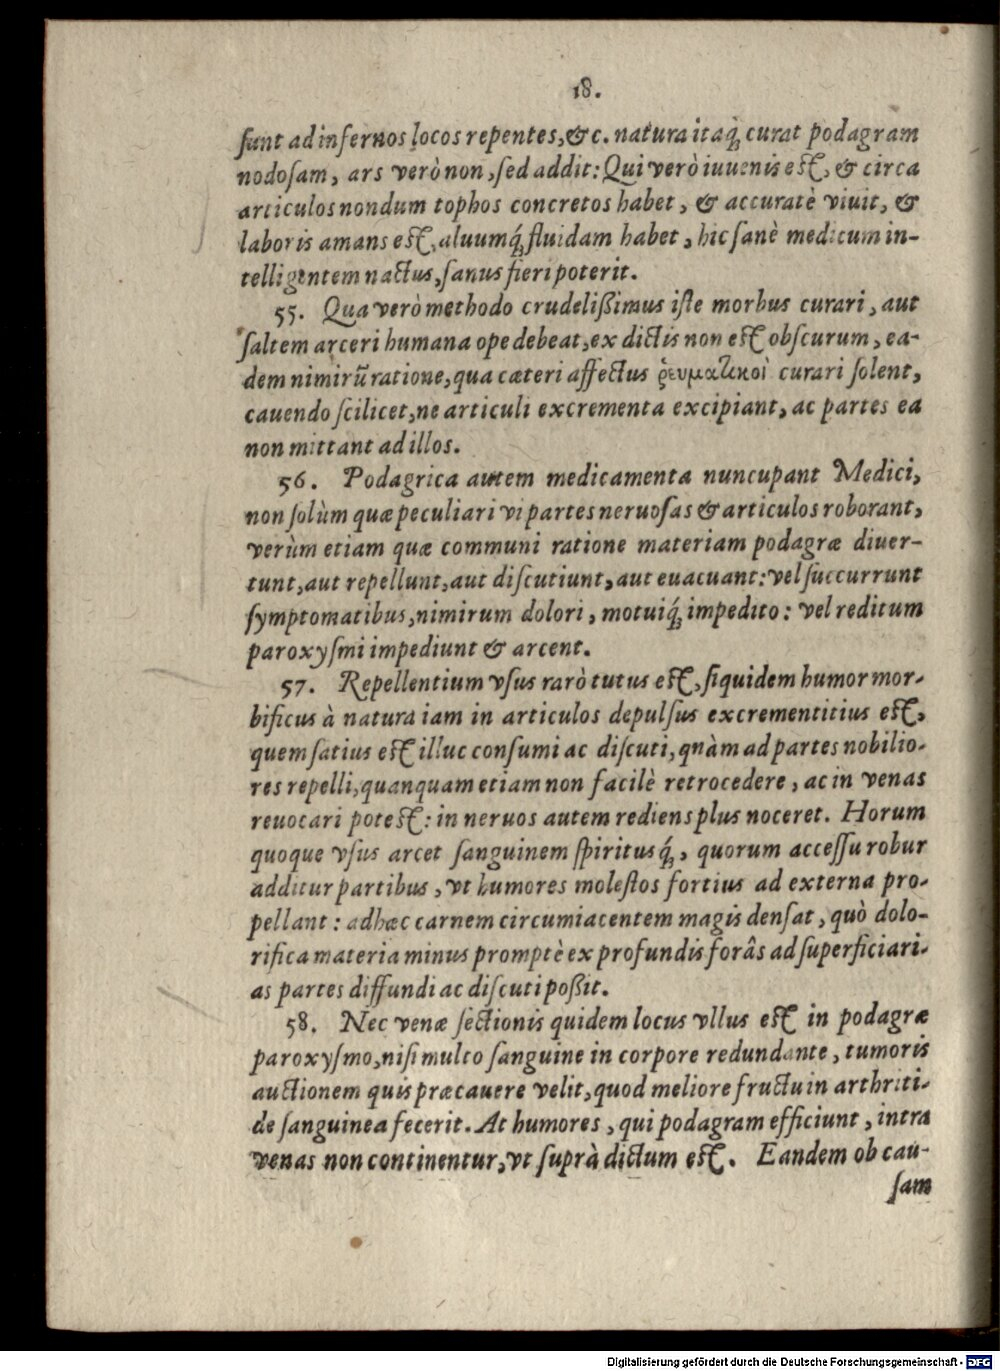 18.
ſunt ad infernos locos repentes, &c. natura itaq; curat podagram
nodoſam, ars verò non, ſed addit: Qui verò iuuenis eſt, & circa
articulos nondum tophos concretos habet, & accuratè viuit, &
laboris amans eſt, aluumq́; fluidam habet, hic ſanè medicum in-
telligentem nactus, ſanus fieri poterit.
55. Qua verò methodo crudelißimus iſte morbus curari, aut
ſaltem arceri humana ope debeat, ex dictis non eſt obſcurum, ea-
dem nimirũ ratione, qua cæteri affectus ῥευματικοὶ curari ſolent,
cauendo ſcilicet, ne articuli excrementa excipiant, ac partes ea
non mittant ad illos.
56. Podagrica autem medicamenta nuncupant Medici,
non ſolùm quæ peculiari vi partes neruoſas & articulos roborant,
verùm etiam quæ communi ratione materiam podagræ diuer-
tunt, aut repellunt, aut diſcutiunt, aut euacuant: vel ſuccurrunt
ſymptomatibus, nimirum dolori, motuiq́; impedito: vel reditum
paroxyſmi impediunt & arcent.
57. Repellentium vſus rarò tutus eſt, ſiquidem humor mor-
bificus à natura iam in articulos depulſus excrementitius eſt,
quem ſatius eſt illuc conſumi ac diſcuti, quàm ad partes nobilio-
res repelli, quanquam etiam non facilè retrocedere, ac in venas
reuocari poteſt: in neruos autem rediens plus noceret. Horum
quoque vſus arcet ſanguinem ſpiritusq́;, quorum acceſſu robur
additur partibus, vt humores moleſtos fortius ad externa pro-
pellant: adhæc carnem circumiacentem magis denſat, quò dolo-
rifica materia minus promptè ex profundis forâs ad ſuperficiari-
as partes diffundi ac diſcuti poßit.
58. Nec venæ ſectionis quidem locus vllus eſt in podagræ
paroxyſmo, niſi multo ſanguine in corpore redundante, tumoris
auctionem quis præcauere velit, quod meliore fructu in arthriti-
de ſanguinea fecerit. At humores, qui podagram efficiunt, intra
venas non continentur, vt ſuprà dictum eſt. Eandem ob cau-
ſam
Digitalisierung gefördert durch die Deutsche Forschungsgemeinschaft - DFG